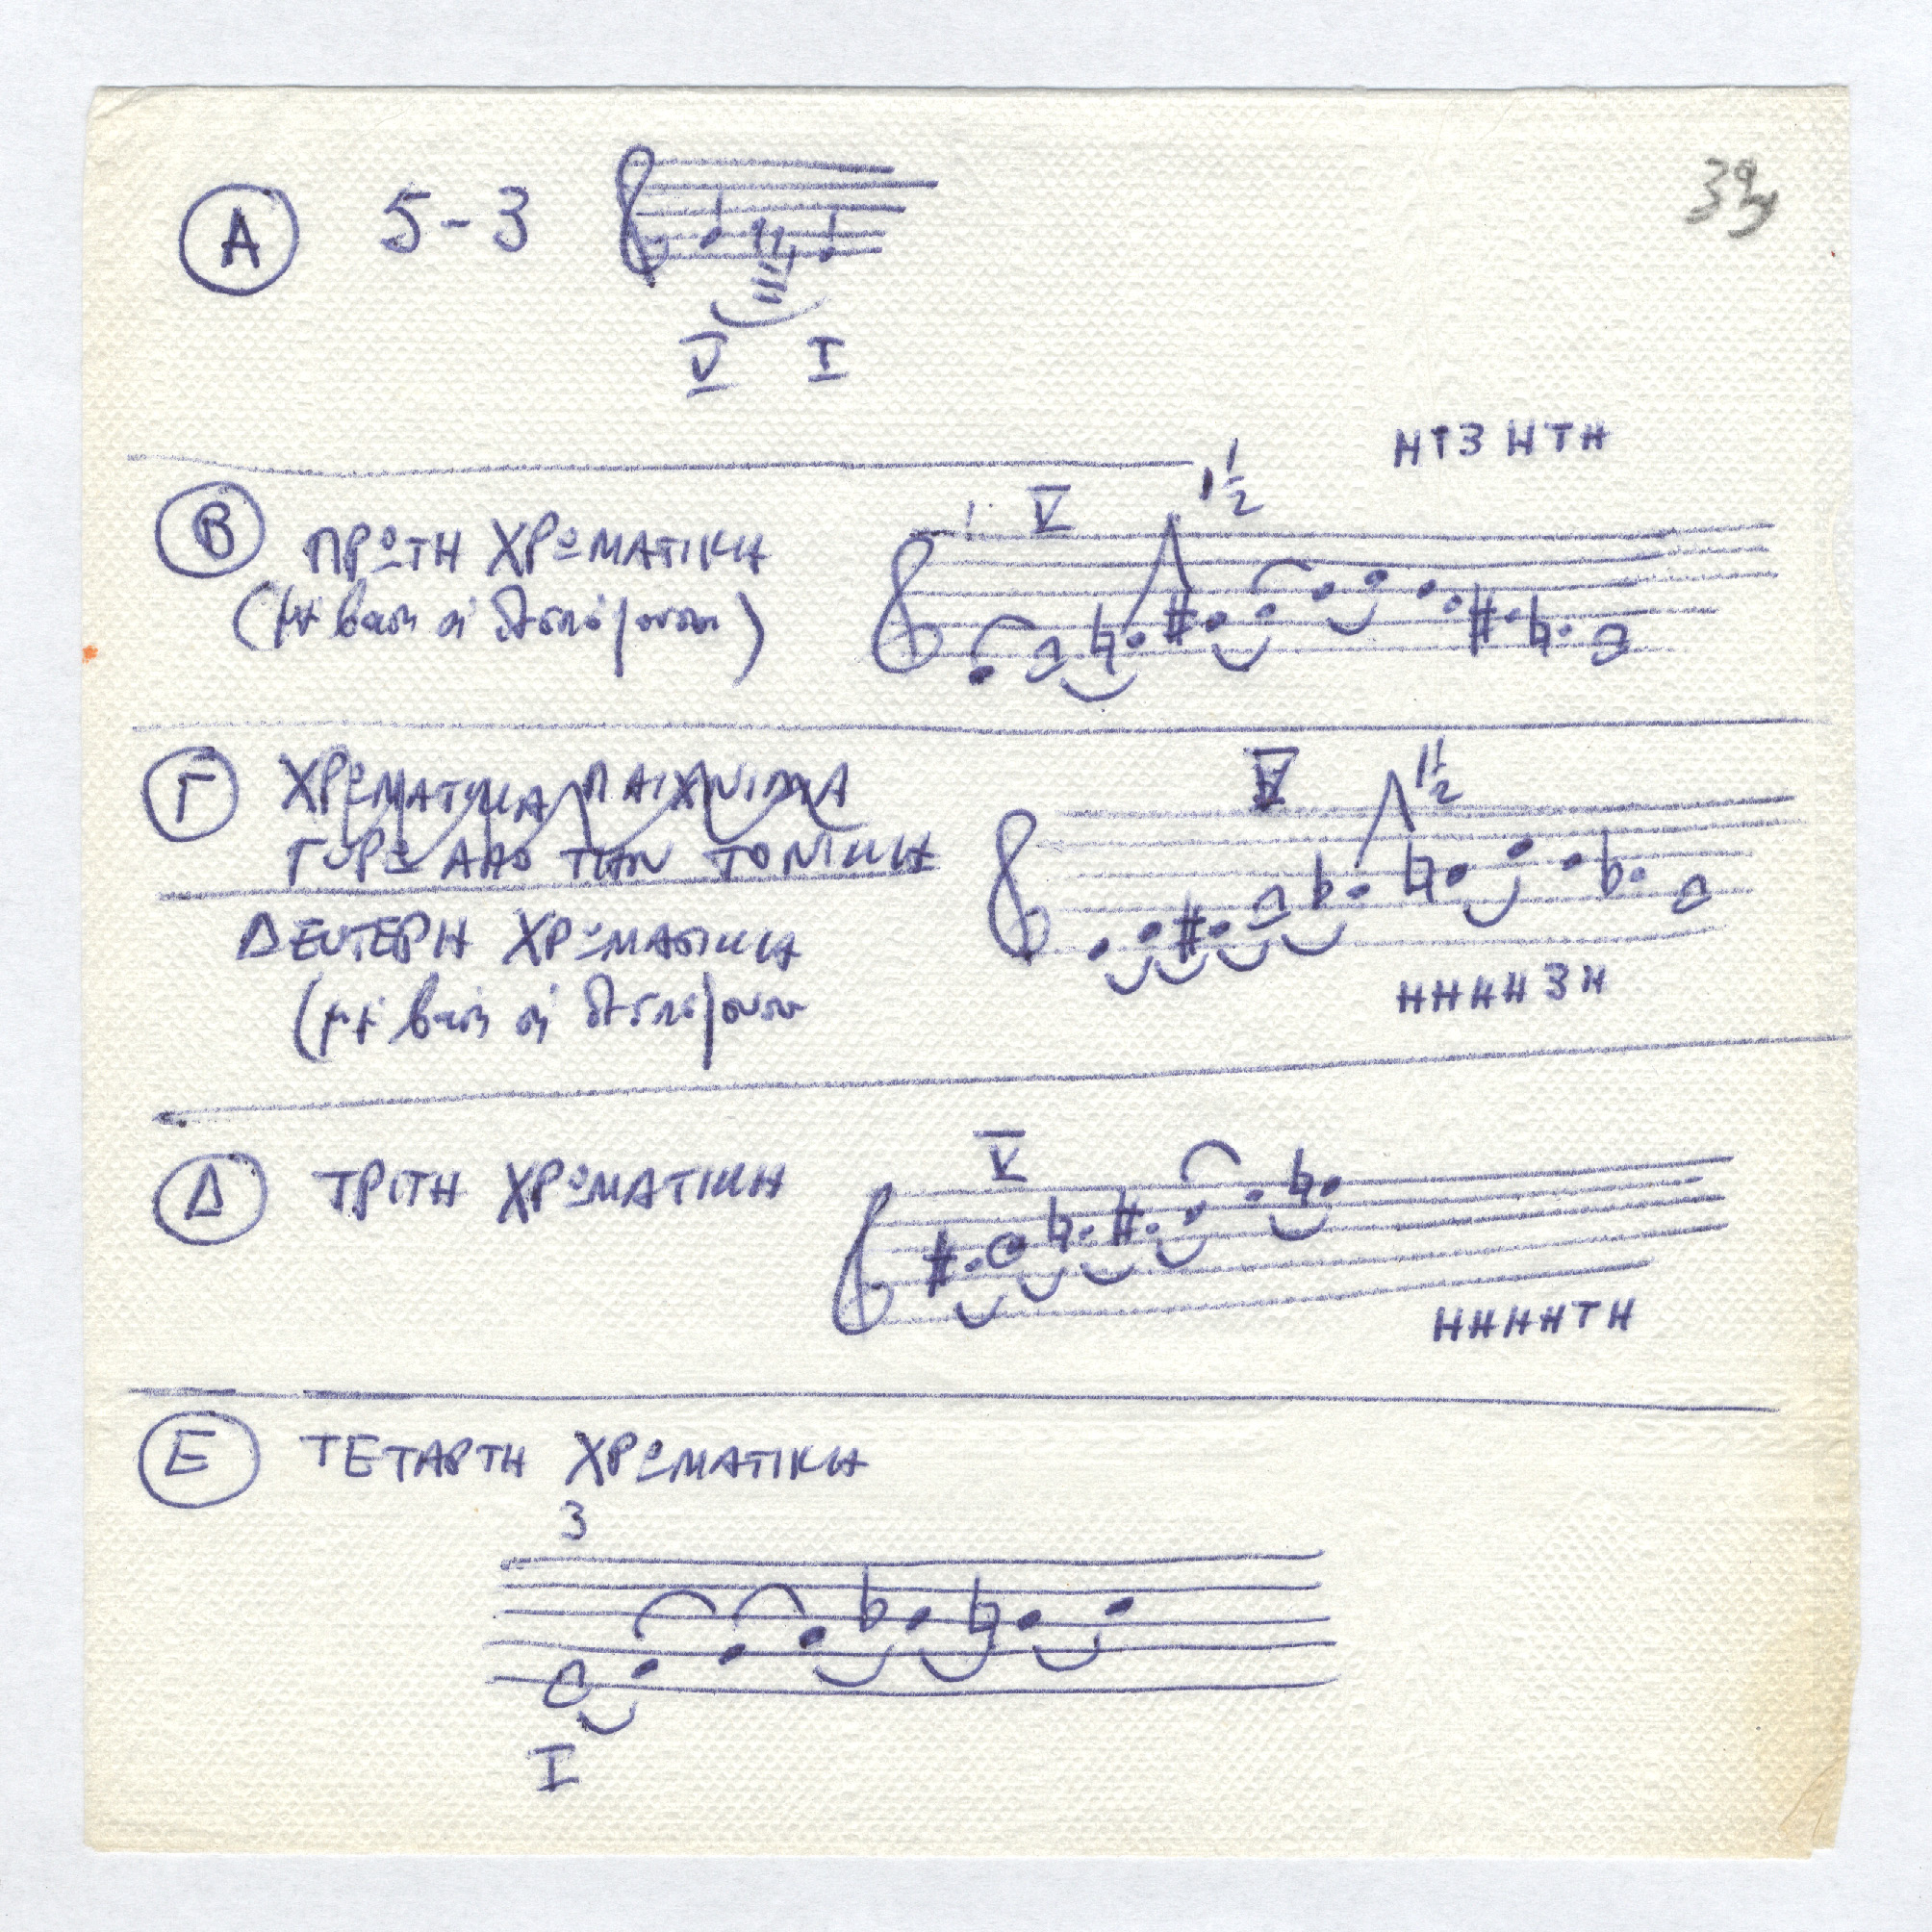 Α 5-3
39
V I
ΗΤ3 ΗΤΗ
Β ΠΡΩΤΗ ΧΡΩΜΑΤΙΚΗ
V 1 1/2
(με βάση δεσπόζουσα)
Γ ΧΡΩΜΑΤΙΚΑ ΠΑΙΧΝΙΔΙΑ
ΓΥΡΩ ΑΠΟ ΤΗΝ ΤΟΝΙΚΗ
1 1/2
ΔΕΥΤΕΡΗ ΧΡΩΜΑΤΙΚΗ
(με βάση δεσπόζουσα
ΗΗΗΗ 3Η
Δ ΤΡΙΤΗ ΧΡΩΜΑΤΙΚΗ
V
ΗΗΗΗΤΗ
Ε ΤΕΤΑΡΤΗ ΧΡΩΜΑΤΙΚΗ
3
I